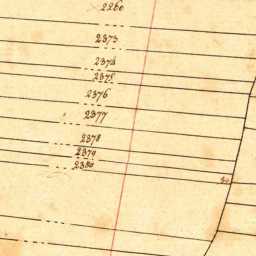 2260
2373
2374
2375
2376
2377
2378
2379
2380